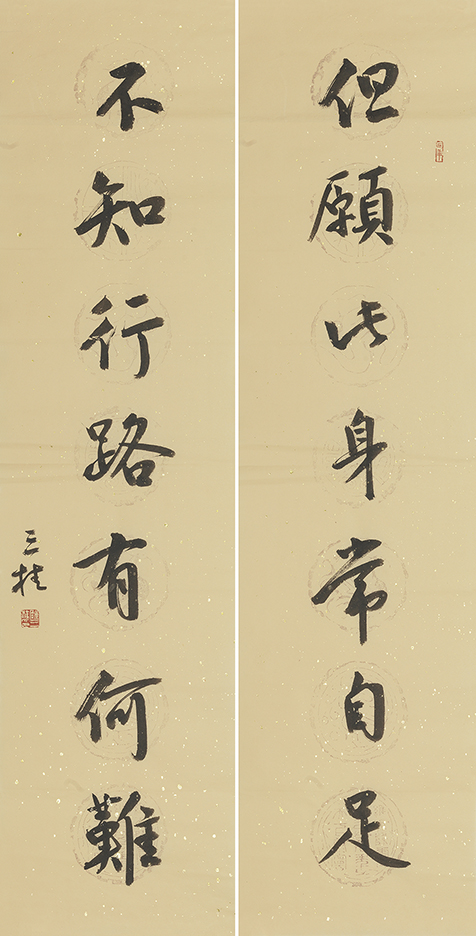 但願此身常自足
不知行路有何難
三桂